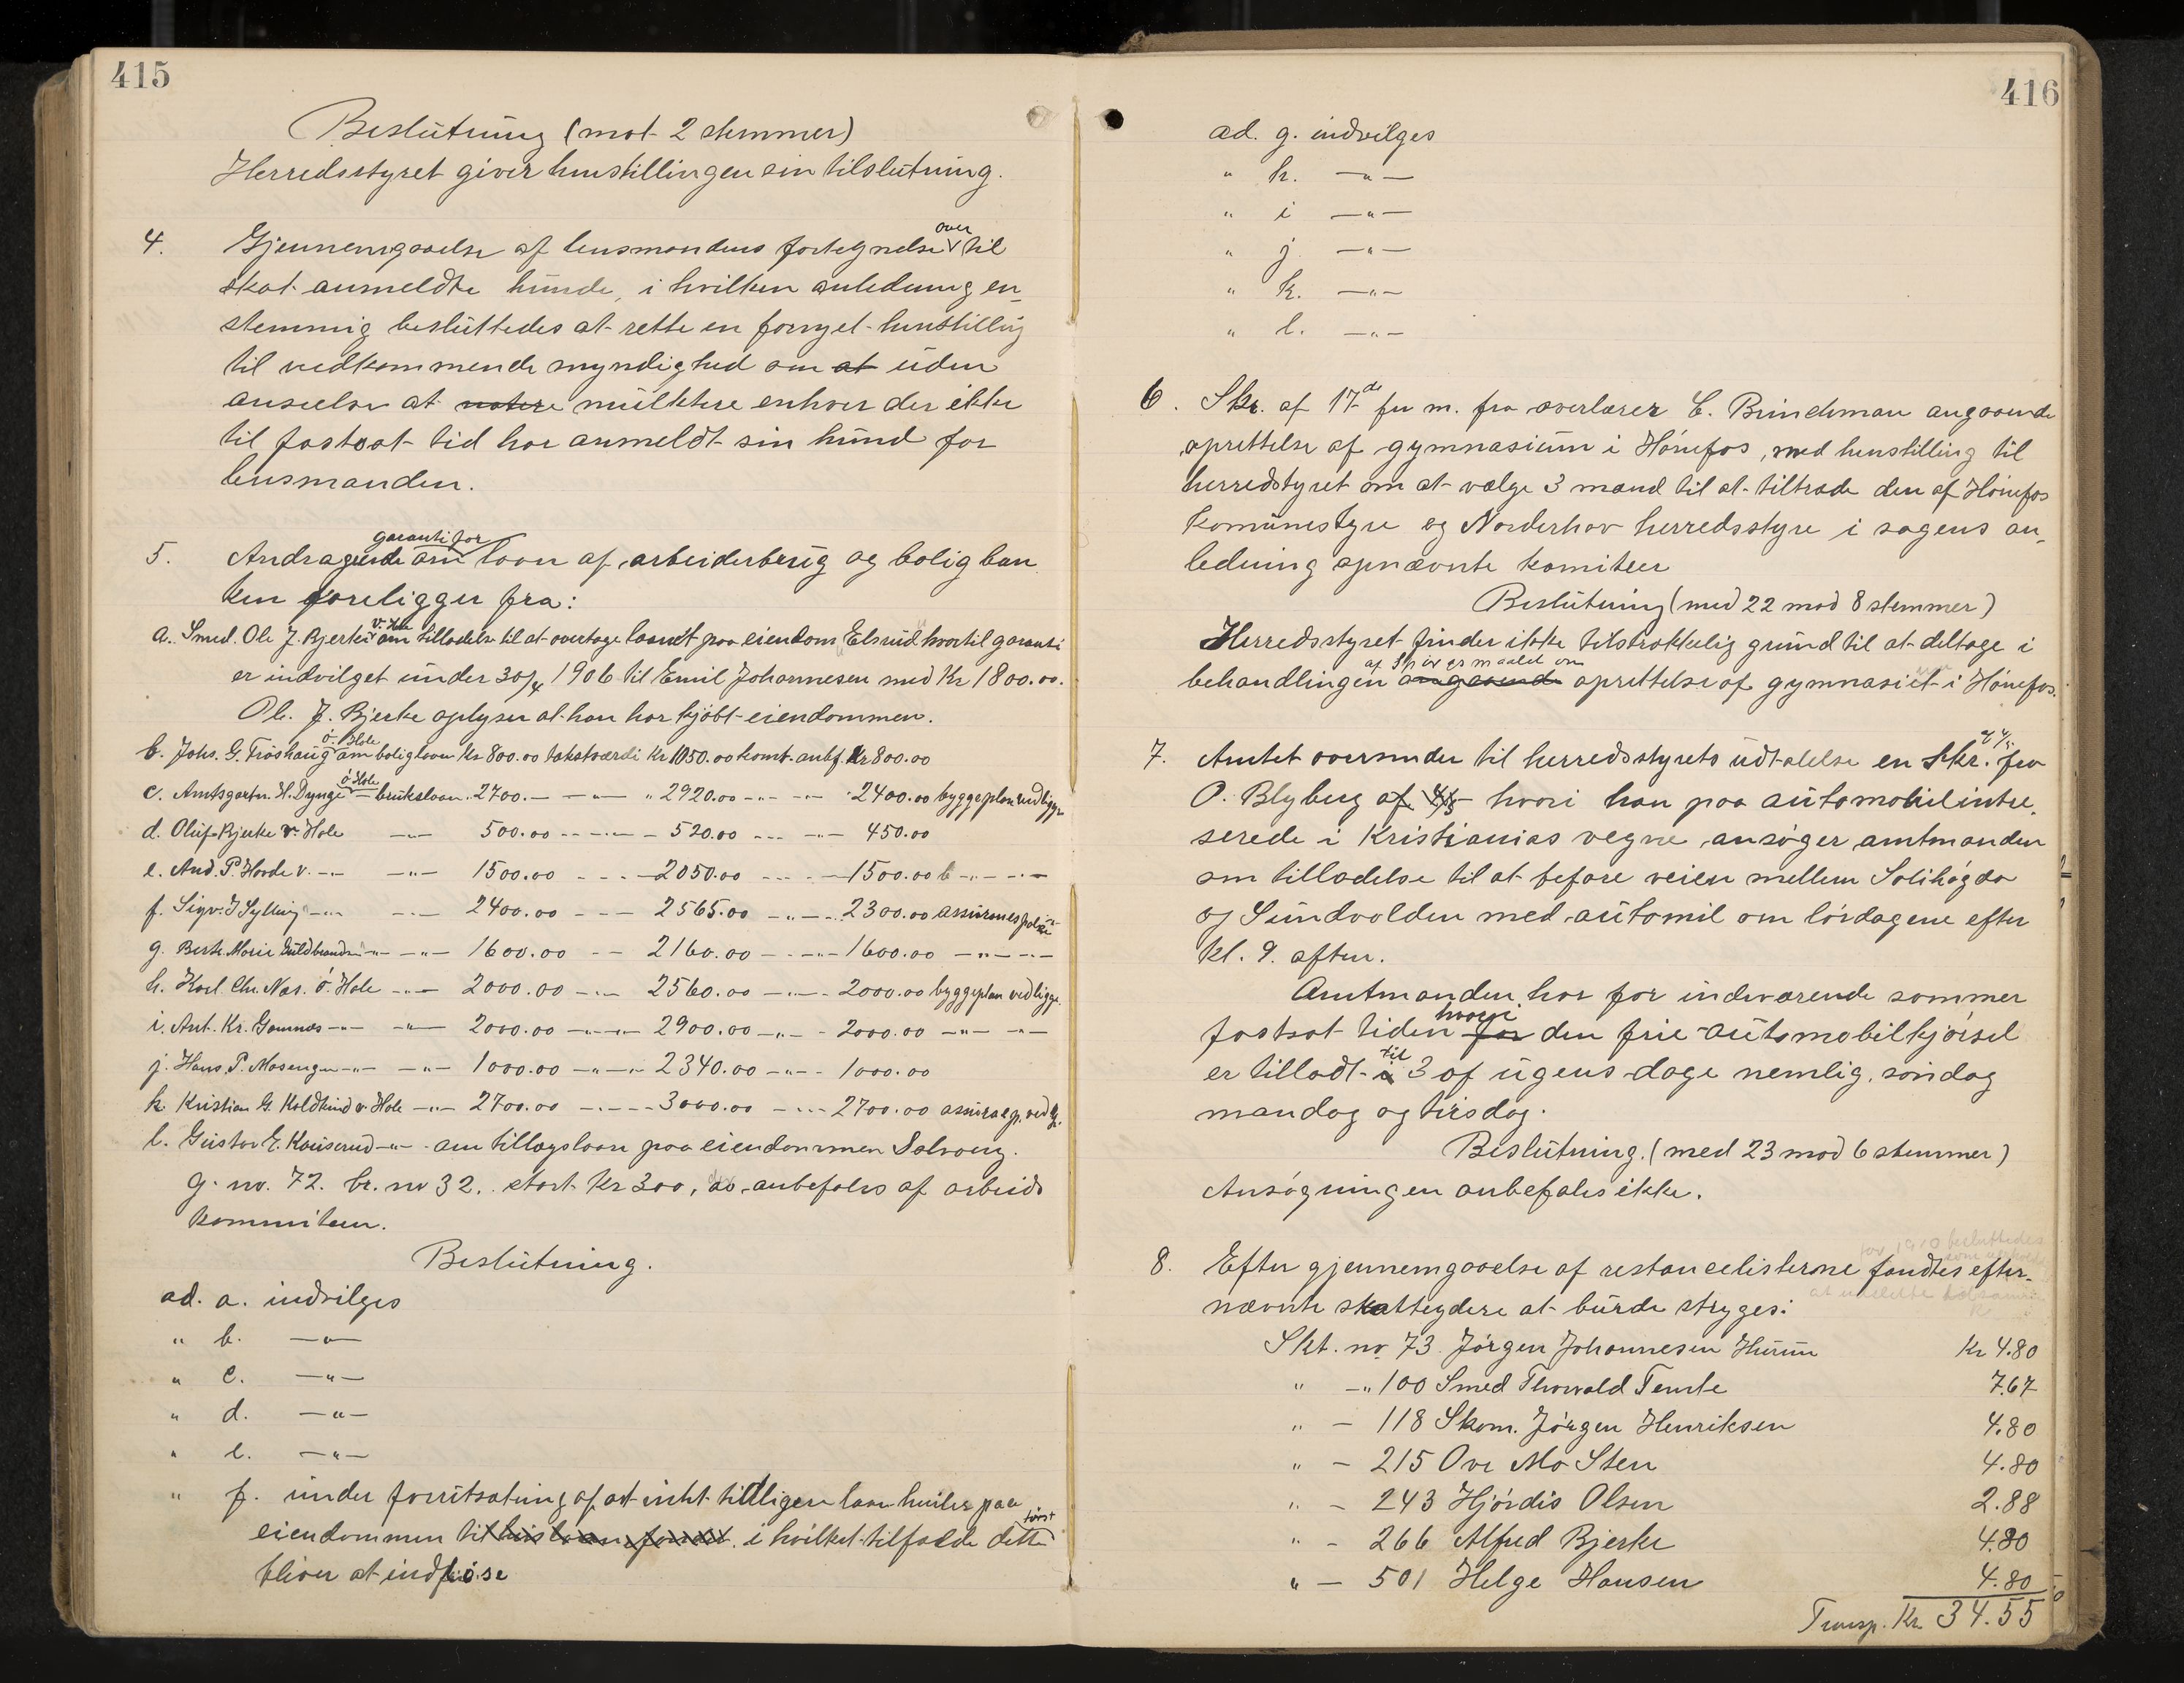 415
Beslutning (mot 2 stemmer)
Herredsstyret giver henstillingen sin tilslutning.
4. Gjennemgaaelse af lensmandens fortegnelse over til
skat anmeldte hunde, i hvilken anledning en-
stemmig besluttedes at rette en fornyet henstilling
til vedkommende myndighed om at uden
anseelse at notere mulktere enhver der ikke
til fastsat tid har anmeldt sin hund for
lensmanden.
5. Andragende om garanti for laan af arbeiderbrug og bolig ban
ken foreligger fra:
a. Smed. Ole J. Bjerke v. Hole om tilladelse til at overtage laanet paa eiendom Elsrud hvortil garanti
er indvilget under 30/4 1906 til Emil Johannesen med Kr 1800.00.
Ole J. Bjerke oplyser at han har kjøbt eiendommen.
b. Johs. G. Frøshaug ø. Hole om boliglaan Kr 800.00 takstværdi Kr 1050.00 komt. anbf. Kr 800.00
c. Amtsgartn. H. Dynge ø Hole – brukslaan. 2700.— —"— " 2920.00 -"- -"- 2400.00 byggeplan vedligger
d. Oluf Bjerke v. Hole —"— 500.00 -"- -"- 520.00 -"- -"- 450.00
e. And. P. Horde v. -"- —"— 1500.00 - - - 2050.00 - - - 1500.00 b -"- -"-
f. Sigv. J Sylling -"- -"- 2400.00 - - - 2565.00 -"- -"- 2300.00 assurancepolice
g. Berte Marie Guldbrands -"- -"- 1600.00 - - 2160.00 - -"- 1600.00 -"- -"-
h. Karl Chr. Næs. ø. Hole -"- 2000.00 -"- 2560.00 -"- 2000.00 byggeplan vedligge.
i. Ant. Kr. Gomnæs -"- -"- 2000.00 -"- -"- 2900.00 -"- - 2000.00 -"- -"-
j. Hans. P. Mosengen -"- -"- 1000.00 -"- -"- 2340.00 -"- - 1000.00
k. Kristian G. Koldkind v. Hole -"- 2700.00 - - - - 3000.00 - - - - 2700.00 assurase p. vedl.
l. Gustav E. Kauserud -"- om tillægslaan paa eiendommen Solvang.
g. nr. 72. br. nr 32. stort Kr 300, anbefales af arbeids
kommiteen.
Beslutning.
ad. a. indvilges
" b. —"—
" c. —"—
" d. —"—
" e. —"—
" f. under forutsætning af at intet tidligere laan hviler paa
eiendommen til hus laan fondet i hvilket tilfælde dette først
bliver at indfriøse
416
ad. g. indvilges
" h. —"—
" i —"—
" j —"—
" k. —"—
" l. —"—
6. Skr. af 17de fm. fra overlærer C. Brinchman angaaende
oprettelse af gymnasium i Hønefos, med henstilling til
herredstyret om at vælge 3 mænd til at tiltræde den af Hønefos
komunestyre og Norderhov herredsstyre i sagens an-
ledning opnævnte komiteer
Beslutning (med 22 mod 8 stemmer)
Herredsstyret finder ikke tilstrækkelig grund til at deltage i
behandlingen angaaende af spørgsmaalet om oprettelse af gymnasiet i Hønefos.
7. Amtet oversender til herredsstyrets udtalelse en Skr. fra
O. Blyberg af 4/5 hvori han paa automobilintre-
serede i Kristianias vegne, ansøger amtmanden
om tilladelse til at befare veien mellem Solihøgda
og Sundvolden med automil om lørdagene efter
kl. 9. aften.
Amtmanden har for indeværende sommer
fastsat tiden for hvori den frie automobilkjørsel
er tilladt i til 3 af ugens dage nemlig, søndag
mandag og tirsdag.
Beslutning. (med 23 mod 6 stemmer)
Ansøgningen anbefales ikke.
8. Efter gjennemgaaelse af restancelisterne for 1910 besluttedes fandtes efter-
nævnte skatteydere at burde stryges:
Skt. nr 73 Jørgen Johannesen Hurum Kr 4.80
" —" 100 Smed Thorvald Temte 7.67
" — 118 Skom. Jørgen Henriksen 4.80
" — 215 Ove Mo Sten 4.80
" — 243 Hjørdis Olsen 2.88
" — 266 Alfred Bjerke 4.80
" — 501 Helge Hansen 4.80
Transp. Kr. 34.55